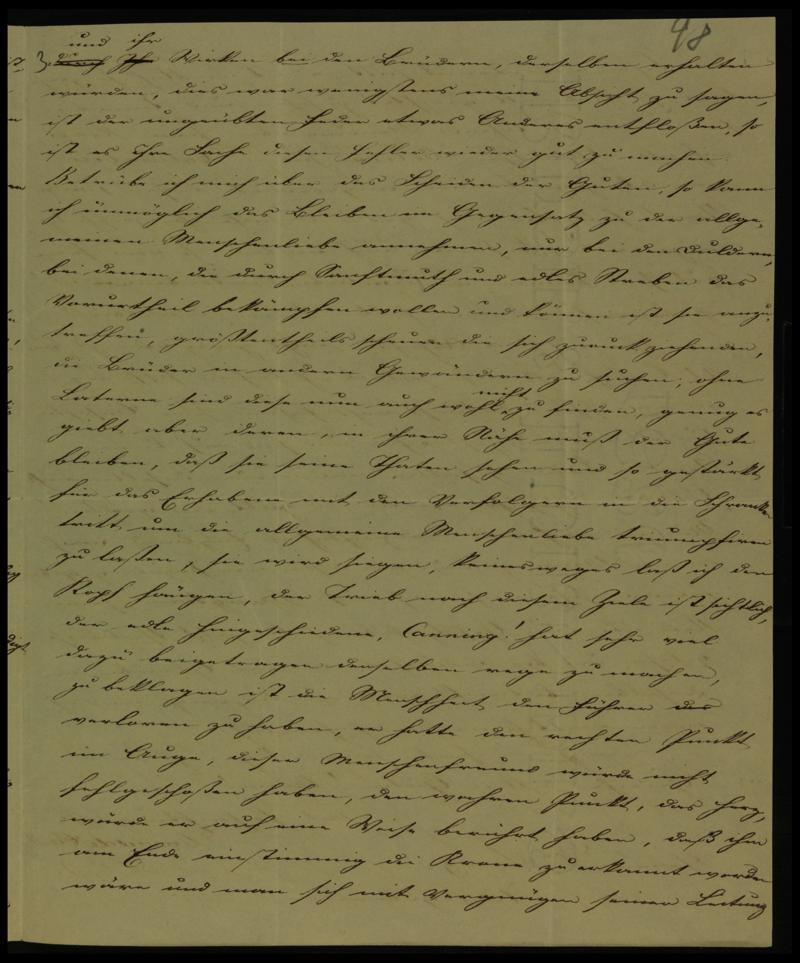 48
und ihr
3. durch Ihr Wirken bei den Brüdern, derselben erhalten
würden, dies war wenigstens meine Absicht zu sagen,
ist der ungeübten Feder etwas Anderes entfloßen, so
ist es Ihre Sache diesen Fehler wieder gut zu machen.
Betrübe ich mich über das Scheiden der Guten, so kann
ich unmöglich das Bleiben im Gegensatz zu der allge-
meinen Menschenliebe annehmen, nur bei den Duldern,
bei denen, die durch Sanftmuth und edles Streben das
Vorurtheil bekämpfen wollen und können ist sie anzu-
treffen, größtentheils scheuen die sich zurückziehenden,
die Brüder in andern Gewändern zu suchen; ohne
nicht
Laterne sind diese nun auch wohl zu finden, genug es
giebt aber deren, in ihrer Nähe muß der Gute
bleiben, daß sie seine Thaten sehen und so gestärkt
für das Erhabene mit den Verfolgern in die Schranken
tritt um die allgemeine Menschenliebe triumpfiren
zu laßen, sie wird siegen, keinesweges laß ich den
Kopf hängen, der Trieb nach diesem Ziele ist sichtlich,
der edle Hingeschiedene, Canning! hat sehr viel
dazu beigetragen denselben rege zu machen,
zu beklagen ist die Menschheit den Führer das
verloren zu haben, er hatte den rechten Punkt
im Auge, dieser Menschenfreund würde nicht
fehlgeschoßen haben, den wahren Punkt, das Herz,
würde er auf eine Weise berührt haben, daß ihm
am Ende einstimmig die Krone zu erkannt worden
wäre und man sich mit Vergnügen seiner Leitung